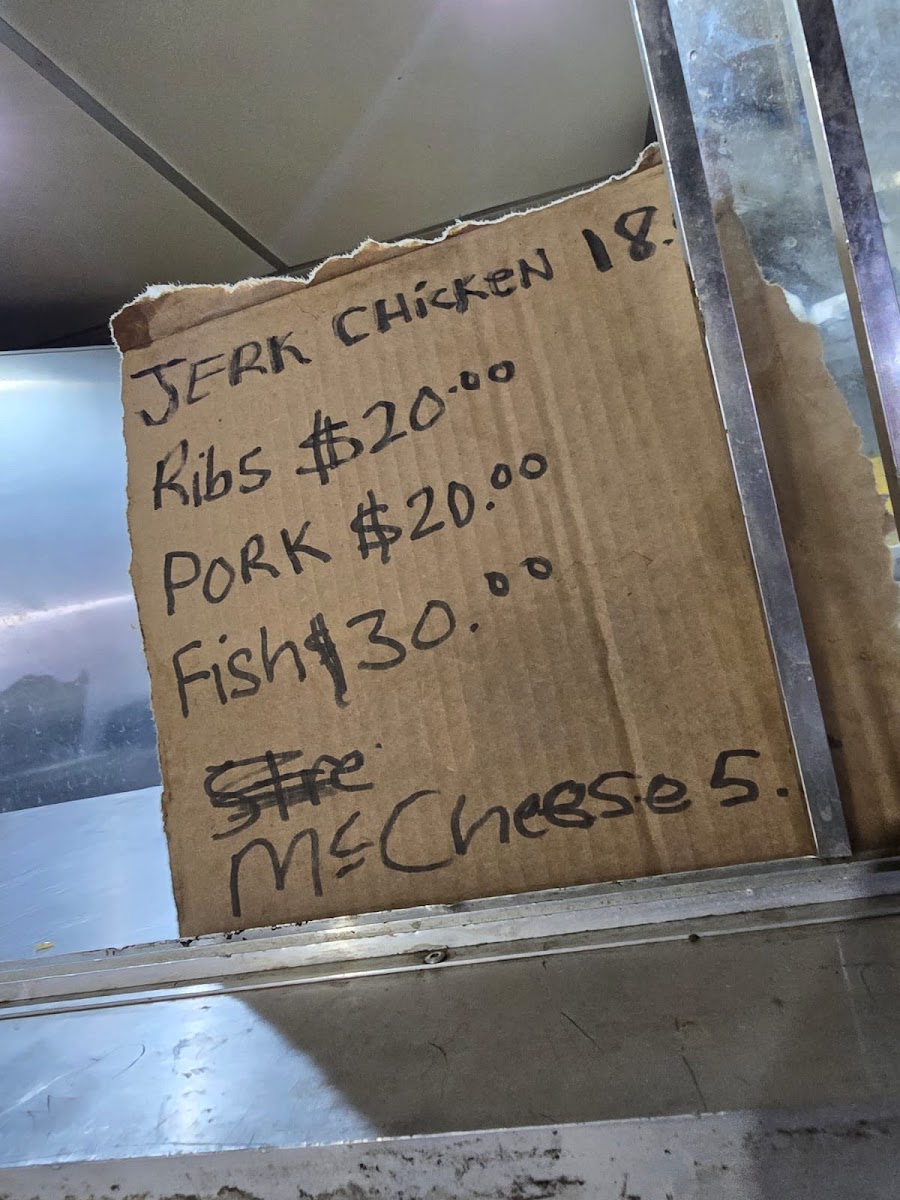 JERK CHICKEN 18.
Ribs $20.00
PORK $20.00
Fish $30.00
McCheese 5.